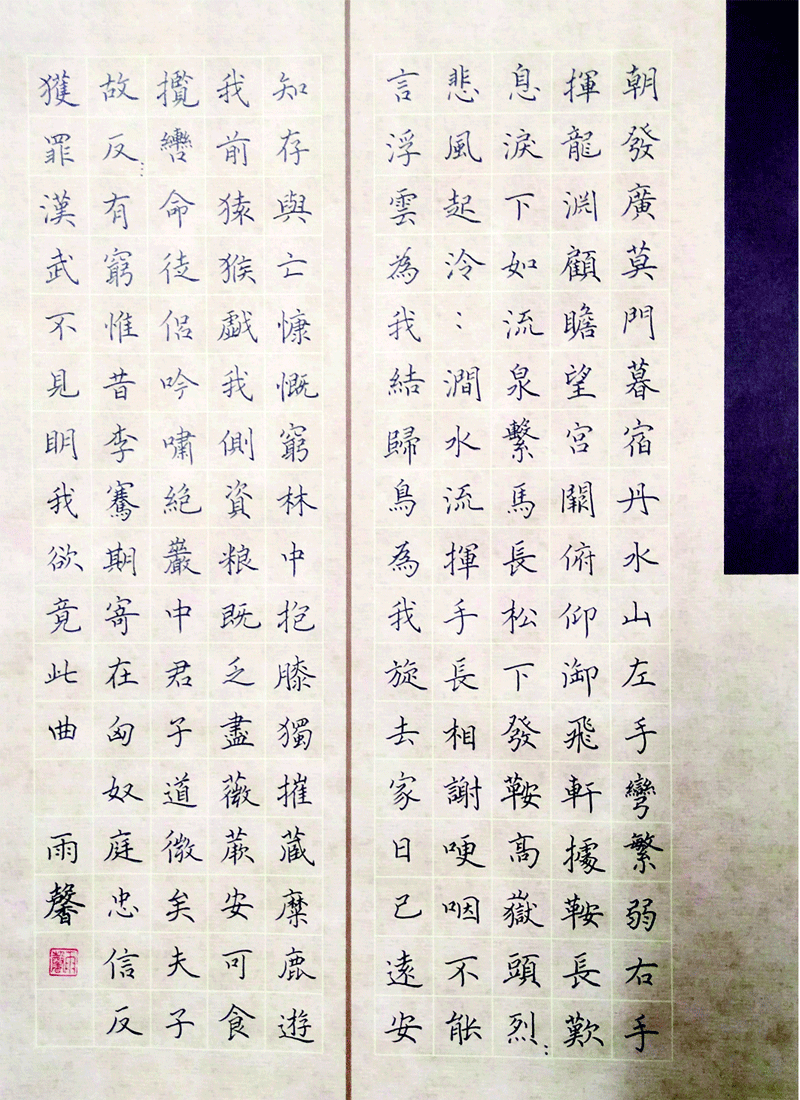 朝發廣莫門暮宿丹水山左手彎繁弱右手
揮龍淵顧瞻望宮闕俯仰御飛軒據鞍長歎
息淚下如流泉繫馬長松下發鞍高嶽頭烈:
悲風起泠:澗水流揮手長相謝哽咽不能
言浮雲為我結歸鳥為我旋去家日已遠安
知存與亡慷慨窮林中抱膝獨摧藏麋鹿遊
我前猿猴戲我側資粮既乏盡薇蕨安可食
攬轡命徒侶吟嘯絕巖中君子道微矣夫子
故反有窮惟昔李騫期寄在匈奴庭忠信反
獲罪漢武不見明我欲竟此曲 雨馨
雨馨